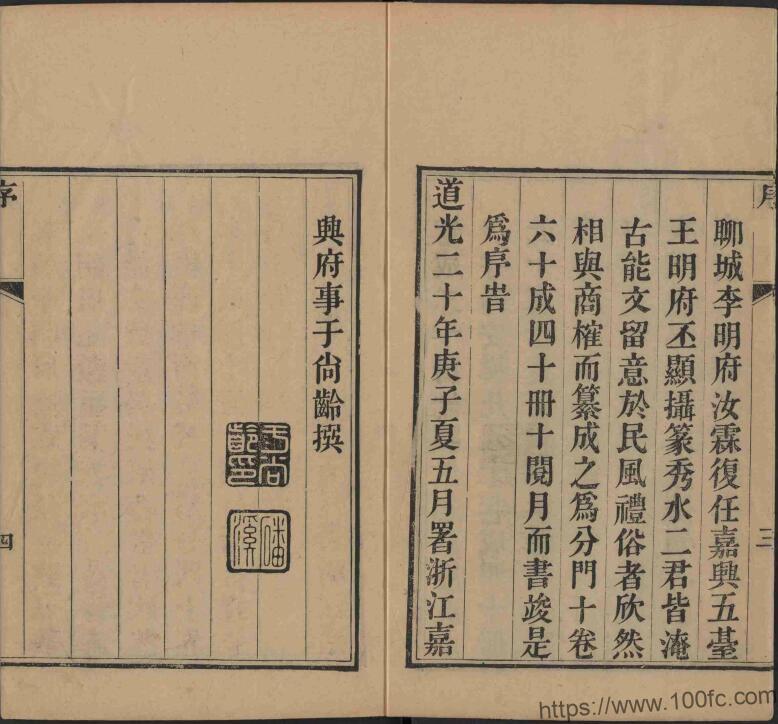 序
三
聊城李明府汝霖復任嘉興五臺
王明府丕顯攝篆秀水二君皆淹
古能文留意於民風禮俗者欣然
相與商榷而纂成之爲分門十卷
六十成四十冊十閱月而書竣是
爲序旹
道光二十年庚子夏五月署浙江嘉
興府事于尙齡撰
于尙
齡印
磻
溪
序
四
https://www.100fc.com